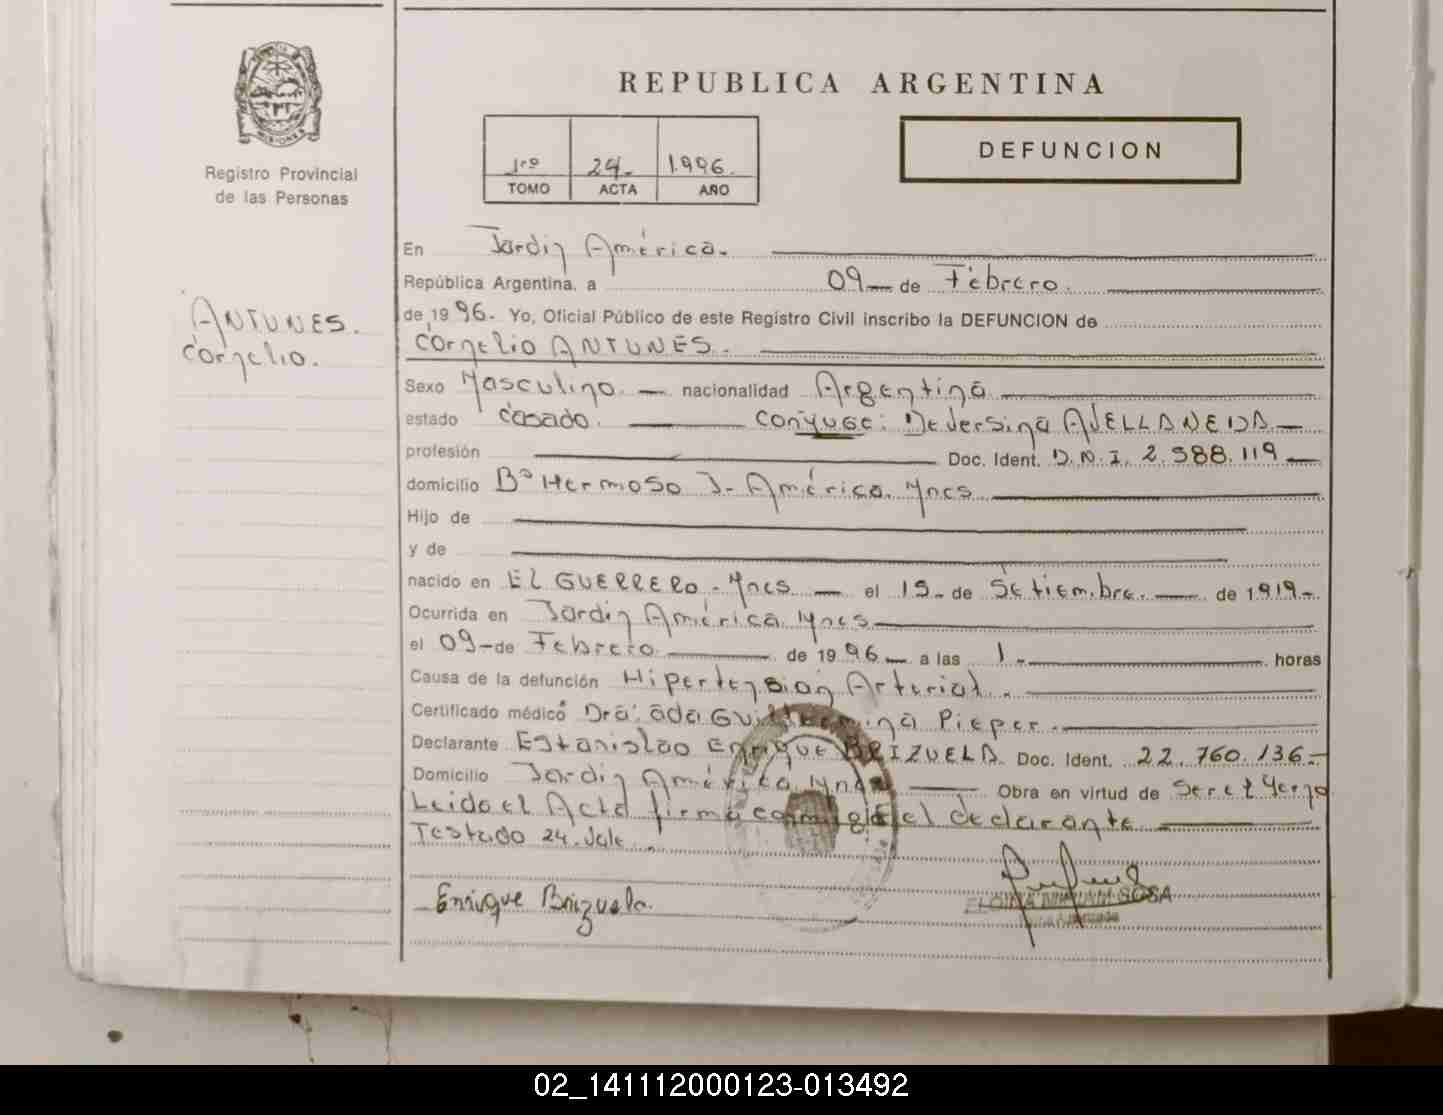 REPUBLICA ARGENTINA
MISIONES
Registro Provincial
de las Personas
1rº 24- 1.996.
TOMO ACTA AÑO
DEFUNCION
ANTUNES.
Cornelio.
En Jardin América.
República Argentina, a 09 de Febrero.
de 1996. Yo, Oficial Público de este Registro Civil inscribo la DEFUNCION de
Cornelio ANTUNES.
Sexo Masculino. nacionalidad Argentina
estado casado. conyuge: Deversina AVELLANEDA
profesión Doc. Ident. D.N.I. 2.588.119
domicilio Bº Hermoso J. América. Mnes
Hijo de
y de
nacido en EL GUERRERO - Mnes el 15- de Setiembre. de 1919-
Ocurrida en Jardin América Mnes
el 09-de Febrero de 1996 a las 1.- horas
Causa de la defunción Hipertensión Arterial.
Certificado médico Dra: Ada Guillermina Pieper.
Declarante Estanislao Enrique BRIZUELA Doc. Ident. 22.760.136-
Domicilio Jardin América Mnes Obra en virtud de Ser el Yerno
Leido el Acta firma conmigo el declarante
Testado 24. Vale.
Enrique Brizuela.
MIRIAM SOSA
02_141112000123-013492